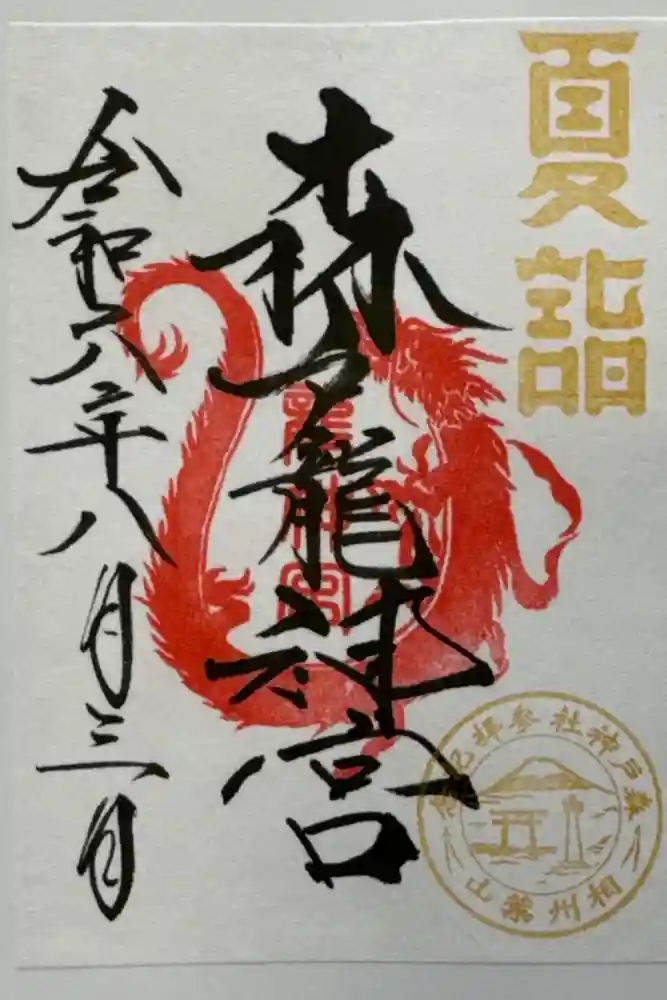 夏詣
森戸龍神宮
令和六年八月三日
森戸神社參拝記念
相州葉山